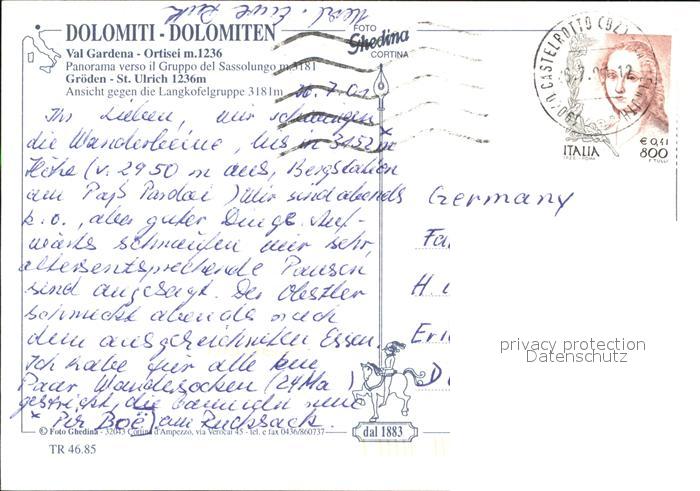 DOLOMITI - DOLOMITEN
Val Gardena - Ortisei m.1236
Panorama verso il Gruppo del Sassolungo m.3181
Gröden - St. Ulrich 1236m
Ansicht gegen die Langkofelgruppe 3181m
FOTO
Ghedina
CORTINA
CASTELROTTO (BZ)
ITALIA
€ 0,41
800
Ihr Lieben, wir schwingen
die Wanderbeine, bis in 3152 m
Höhe (v. 2950 m aus, Bergstation
am Paß Pordoi) Wir sind abends
k.o., aber guter Dinge. Auf-
wärts schnaufen wir sehr,
altersentsprechende Pausen
sind angesagt. Der Obstler
schmeckt abends nach
dem ausgezeichneten Essen.
Ich habe für alle ein
Paar Wandersocken (24 Ma )
gestrickt, die baumeln
* Piz Boè am Rucksack.
Germany
Fa
H.
Eri
D
privacy protection
Datenschutz
© Foto Ghedina - 32043 Cortina d'Ampezzo, via Verocai 45 - tel. e fax 0436/860737
dal 1883
TR 46.85